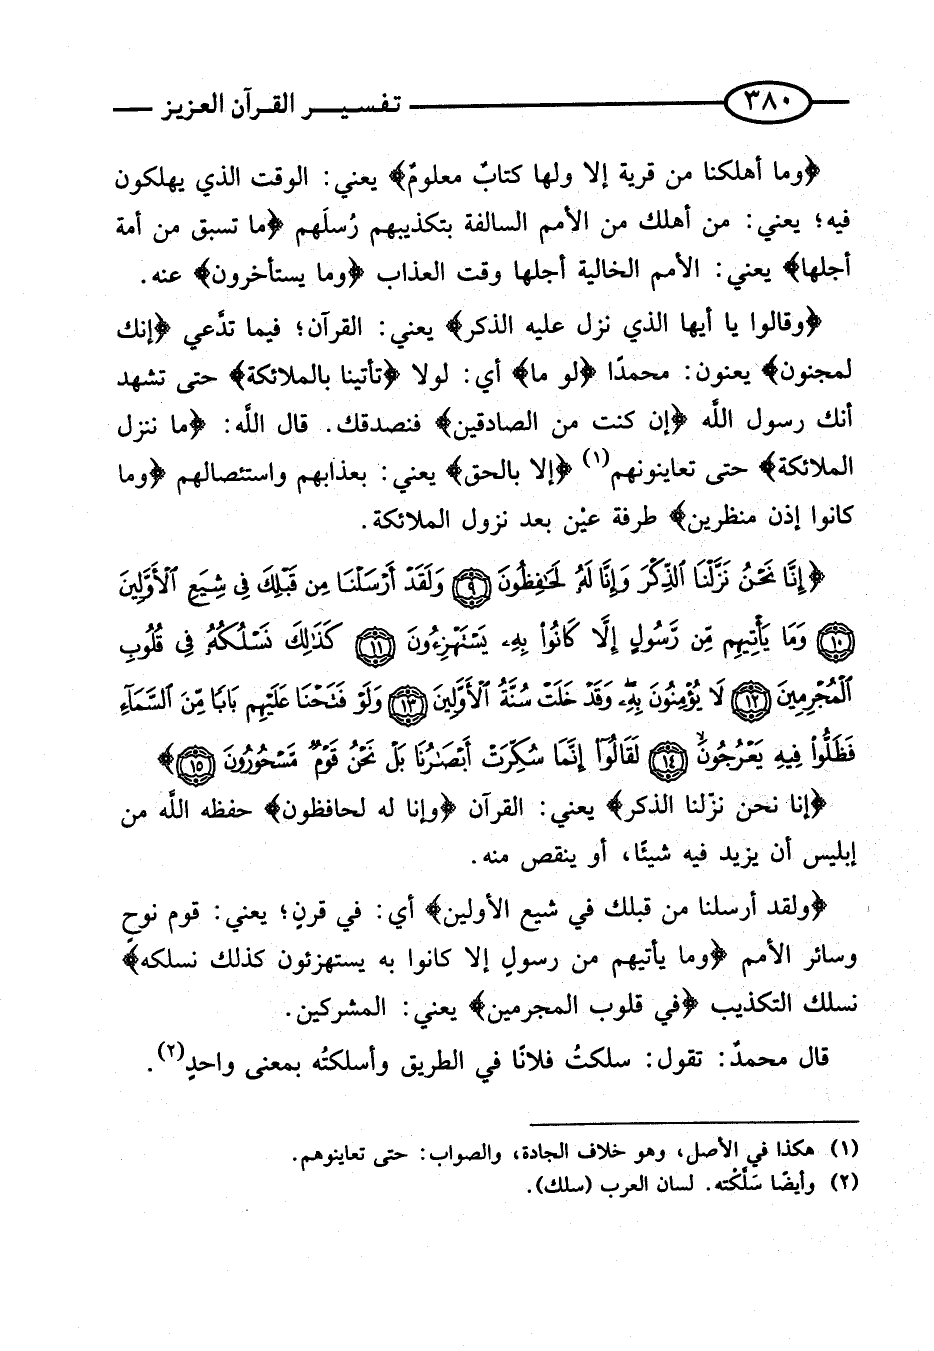 ٣٨٠ تفسير القرآن العزيز
﴿وما أهلكنا من قرية إلا ولها كتابٌ معلومٌ﴾ يعني: الوقت الذي يهلكون
فيه؛ يعني: من أهلك من الأمم السالفة بتكذيبهم رُسلَهم ﴿ما تسبق من أمة
أجلها﴾ يعني: الأمم الخالية أجلها وقت العذاب ﴿وما يستأخرون﴾ عنه.
﴿وقالوا يا أيها الذي نزل عليه الذكر﴾ يعني: القرآن؛ فيما تدَّعي ﴿إنك
لمجنون﴾ يعنون: محمدًا ﴿لو ما﴾ أي: لولا ﴿تأتينا بالملائكة﴾ حتى تشهد
أنك رسول اللَّه ﴿إن كنت من الصادقين﴾ فنصدقك. قال اللَّه: ﴿ما ننزل
الملائكة﴾ حتى تعاينونهم(١) ﴿إلا بالحق﴾ يعني: بعذابهم واستئصالهم ﴿وما
كانوا إذن منظرين﴾ طرفة عيْن بعد نزول الملائكة.
﴿إِنَّا نَحْنُ نَزَّلْنَا ٱلذِّكْرَ وَإِنَّا لَهُۥ لَحَٰفِظُونَ ٩ وَلَقَدْ أَرْسَلْنَا مِن قَبْلِكَ فِى شِيَعِ ٱلْأَوَّلِينَ
١٠ وَمَا يَأْتِيهِم مِّن رَّسُولٍ إِلَّا كَانُوا۟ بِهِۦ يَسْتَهْزِءُونَ ١١ كَذَٰلِكَ نَسْلُكُهُۥ فِى قُلُوبِ
ٱلْمُجْرِمِينَ ١٢ لَا يُؤْمِنُونَ بِهِۦۖ وَقَدْ خَلَتْ سُنَّةُ ٱلْأَوَّلِينَ ١٣ وَلَوْ فَتَحْنَا عَلَيْهِم بَابًا مِّنَ ٱلسَّمَآءِ
فَظَلُّوا۟ فِيهِ يَعْرُجُونَۙ ١٤ لَقَالُوٓا۟ إِنَّمَا سُكِّرَتْ أَبْصَٰرُنَا بَلْ نَحْنُ قَوْمٌ مَّسْحُورُونَ ١٥﴾
﴿إنا نحن نزّلنا الذكر﴾ يعني: القرآن ﴿وإنا له لحافظون﴾ حفظه اللَّه من
إبليس أن يزيد فيه شيئًا، أو ينقص منه.
﴿ولقد أرسلنا من قبلك في شيع الأولين﴾ أي: في قرنٍ؛ يعني: قوم نوحٍ
وسائر الأمم ﴿وما يأتيهم من رسولٍ إلا كانوا به يستهزئون كذلك نسلكه﴾
نسلك التكذيب ﴿في قلوب المجرمين﴾ يعني: المشركين.
قال محمدٌ: تقول: سلكتُ فلانًا في الطريق وأسلكتُه بمعنى واحدٍ(٢).
(١) هكذا في الأصل، وهو خلاف الجادة، والصواب: حتى تعاينوهم.
(٢) وأيضًا سَلَّكْته. لسان العرب (سلك).